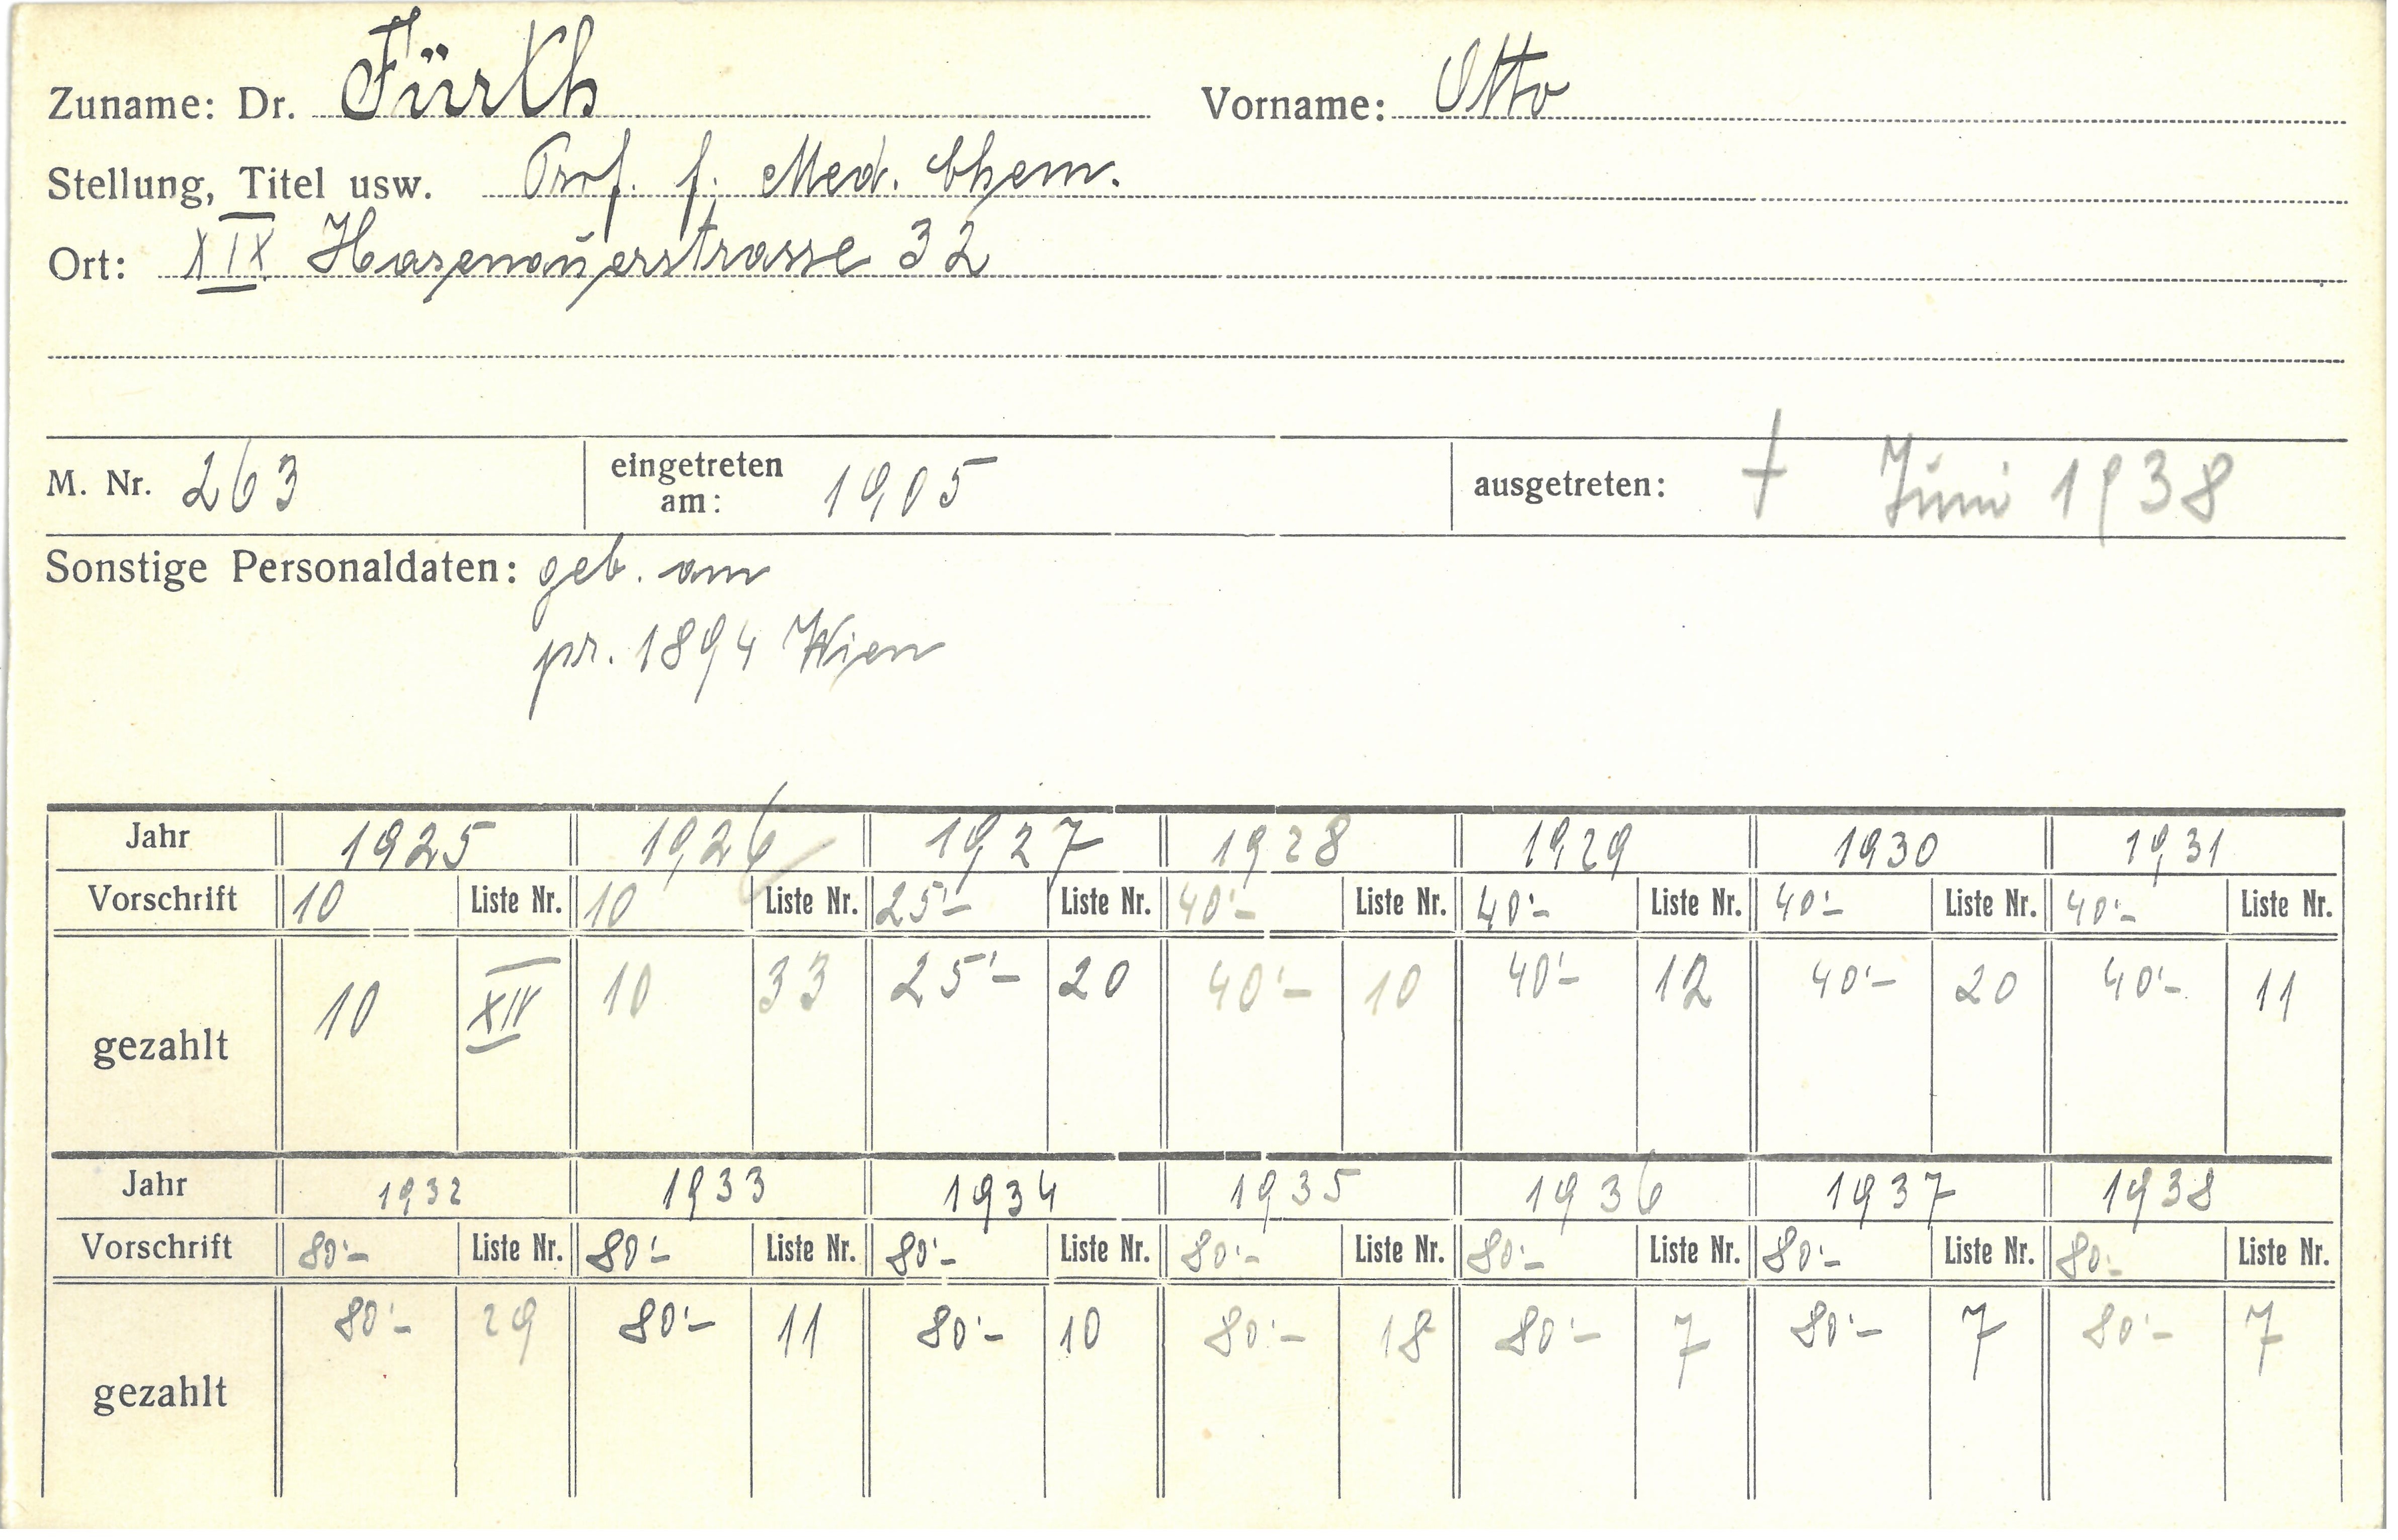 Zuname: Dr. Fürth Vorname: Otto
Stellung, Titel usw. Prof. f. Med. Chem.
Ort: XIX Hasenauerstrasse 32
M. Nr. 263 eingetreten am: 1905 ausgetreten: † Juni 1938
Sonstige Personaldaten: geb. am
pr. 1894 Wien
Jahr 1925 1926 1927 1928 1929 1930 1931
Vorschrift 10 Liste Nr. 10 Liste Nr. 25'- Liste Nr. 40'- Liste Nr. 40'- Liste Nr. 40'- Liste Nr. 40'- Liste Nr.
gezahlt 10 XIV 10 33 25'- 20 40'- 10 40'- 12 40'- 20 40'- 11
Jahr 1932 1933 1934 1935 1936 1937 1938
Vorschrift 80'- Liste Nr. 80'- Liste Nr. 80'- Liste Nr. 80'- Liste Nr. 80'- Liste Nr. 80'- Liste Nr. 80'- Liste Nr.
gezahlt 80'- 29 80'- 11 80'- 10 80'- 18 80'- 7 80'- 7 80'- 7